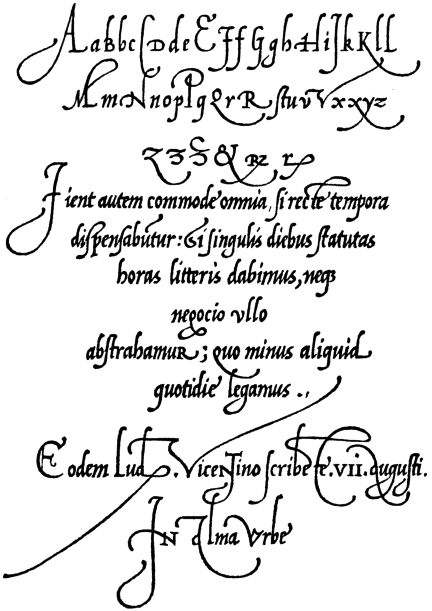 AaBbcCDdeEFfGghHiJkKll
MmNnopPqQrRſtuvVxxyz
& Rꝛ
Fient autem commode omnia, ſi recte tempora
diſpenſabūtur: Et ſi ſingulis diebus ſtatutas
horas litteris dabimus, neqꝫ
negocio vllo
abſtrahamuR; quo minus aliquid
quotidie legamus .,
Eodem Lud. ViceNtino ſcribēte. VII. auguſti.
IN Alma Vrbe